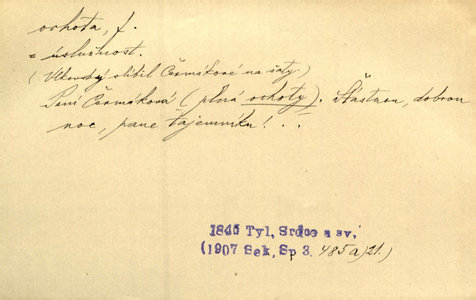 ochota, f.
= úslužnost.
(Vlkovský slíbil Čermákové na šaty.)
Paní Čermáková (plná ochoty). Šťastnou, dobrou
noc, pane tajemníku! . .
1845 Tyl, Srdce a sv.
(1907 Sek, Sp 3. 485a)21.)